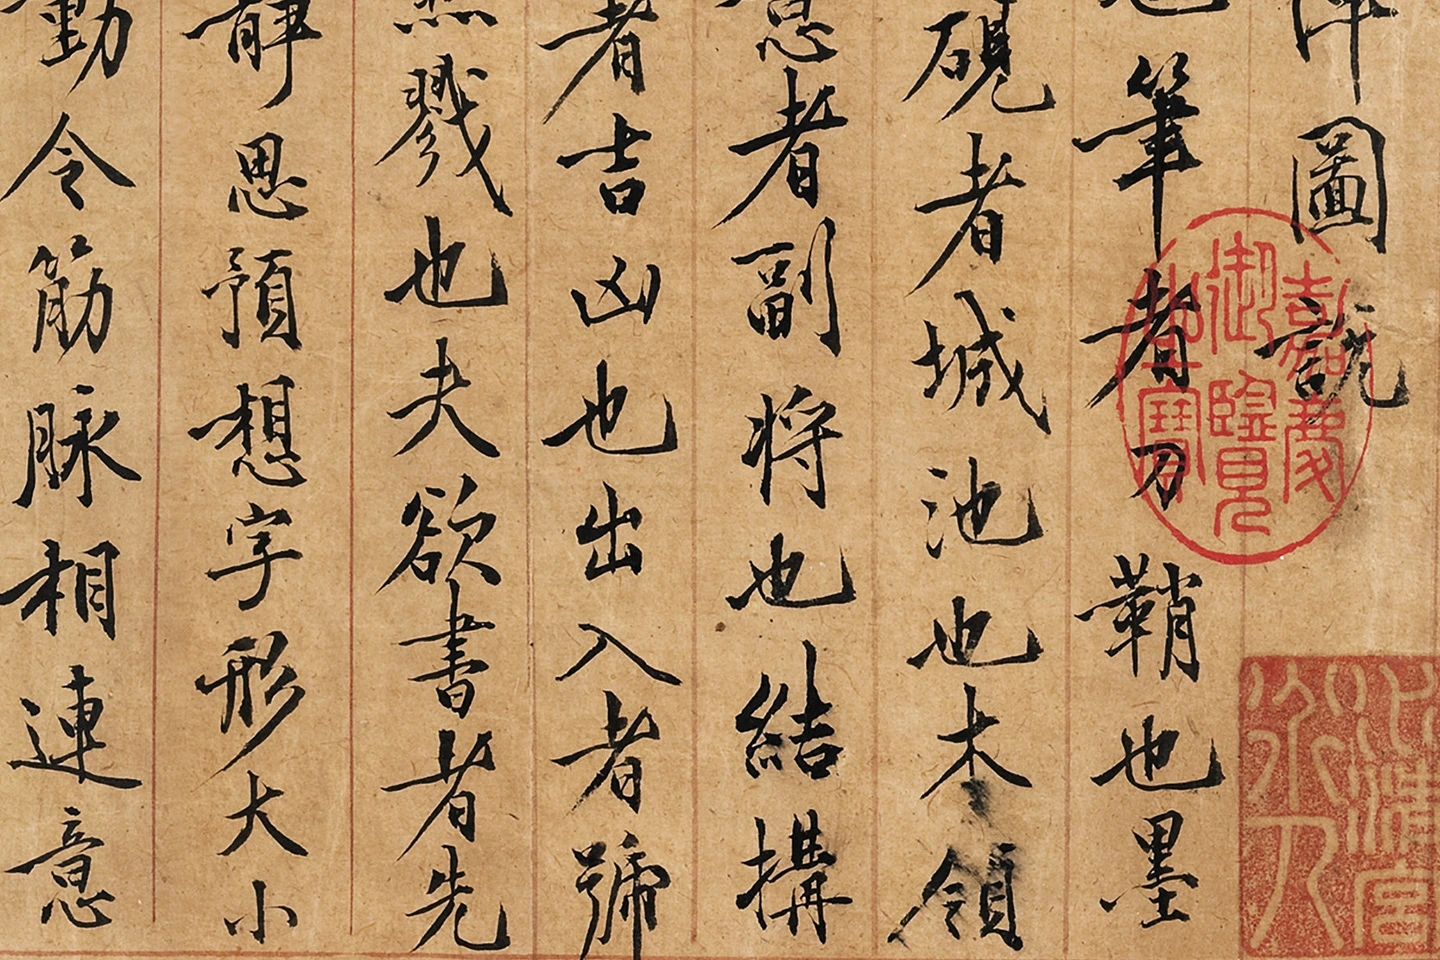 陣圖説
也筆者刀鞘也墨
硯者城池也本領
意者副将也結構
者吉凶也出入者號
戮也夫欲書者先
静思預想字形大小
動令筋脉相連意
嘉慶
御覽
之寶